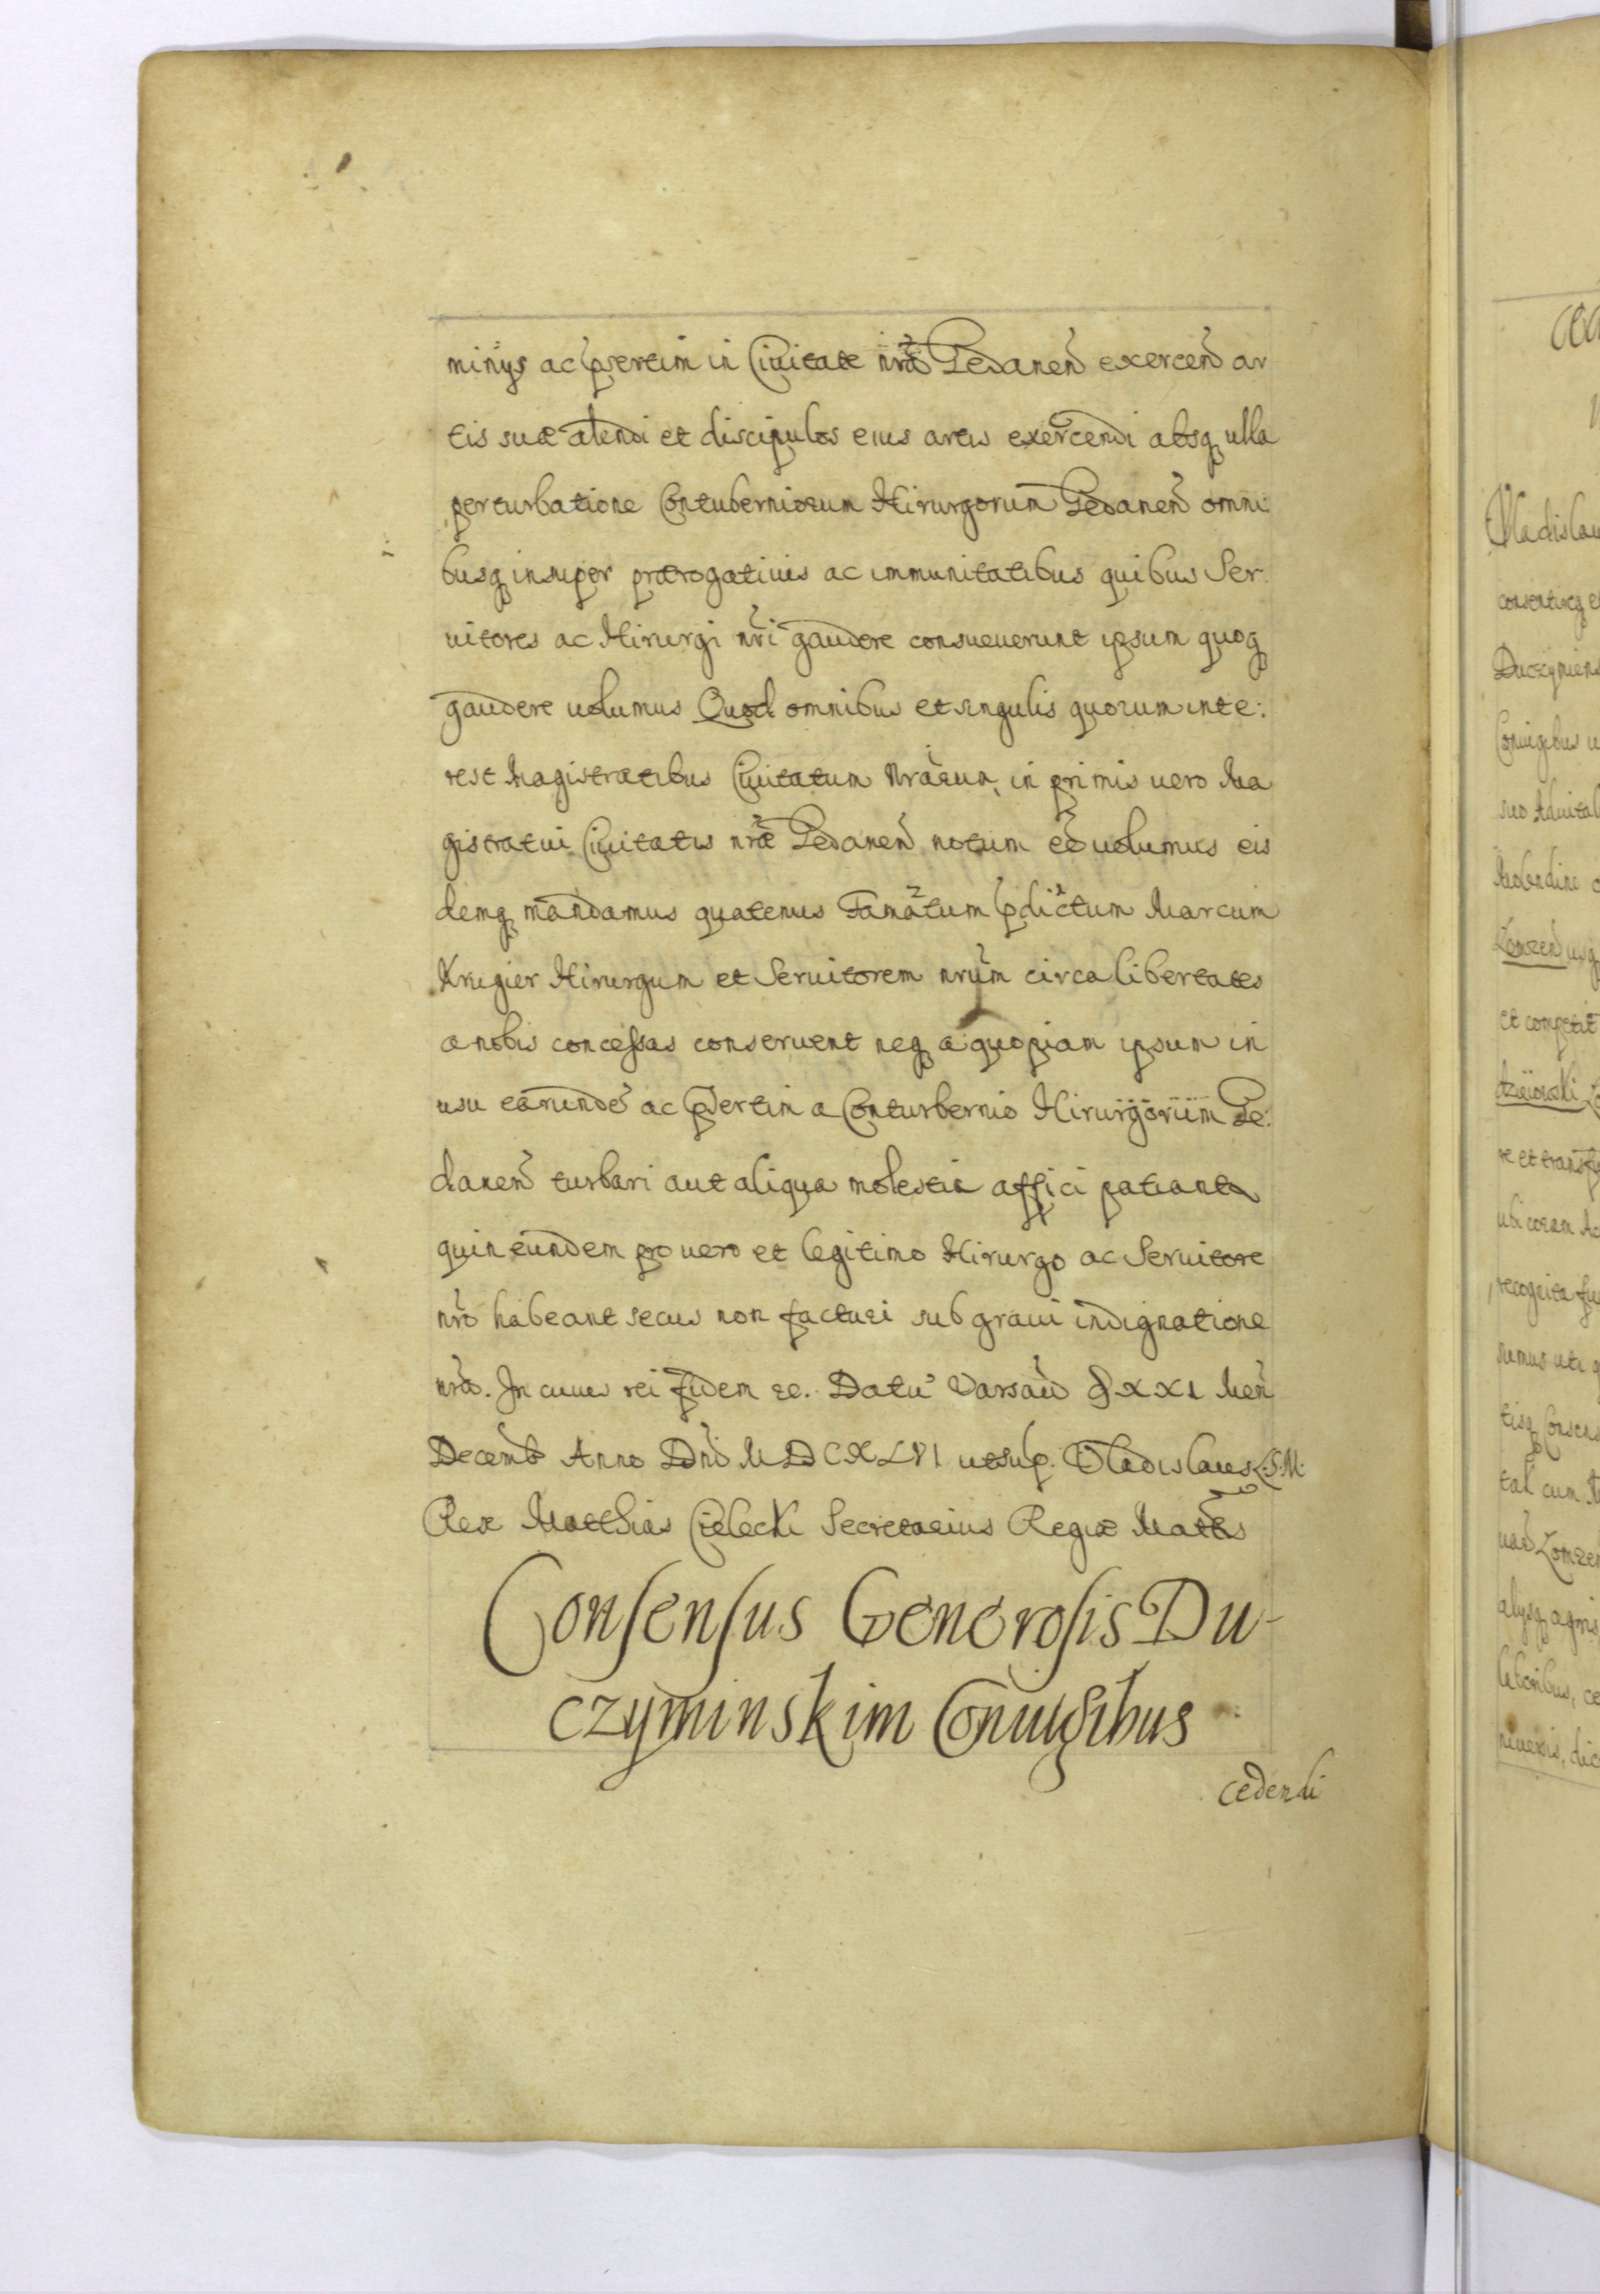 minijs ac p̃sertim in Ciuitate nr̃a Gedanen̄ exercen̄ ar
tis suæ alendi et discipulos eius artis exercendi absq ulla
perturbatione Contuberniorum Hirurgorum Gedanen̄ omni:
busq insuper prærogatiuis ac immunitatibus quibus Ser:
uitores ac Hirurgi nr̃i gaudere consueuerunt ipsum quoq
gaudere uolumus Quod omnibus et singulis quorum inte:
rest Magistratibus Ciuitatum Nr̃arum, in primis uero Ma
gistratui Ciuitatis nr̃æ Gedanen̄ notum eẽ uolumus eis
demq mandamus quatenus Famatum p̃dictum Marcum
Krugier Hirurgum et Seruitorem nrũm circa libertates
a nobis concessas conseruent neq a quopiam ipsum in
usu earundẽ ac p̃sertim a Conturbernio Hirurgorum Ge:
danen̄ turbari aut aliqua molestia affici patiantr
quin eundem pro uero et legitimo Hirurgo ac Seruitore
nr̃o habeant secus non facturi sub graui indignatione
nr̃a. In cuius rei fidem ec. Datũ Varsau̅ D XXI Men̄
Decemb Anno Dn̄i MDCXLVI utsup. Vladislaus L.S.M.
Rex Matthias Cielecki Secretarius Regiæ Mattis
Consensus Generosis Du-
czyminskim Coniugibus
cedendi